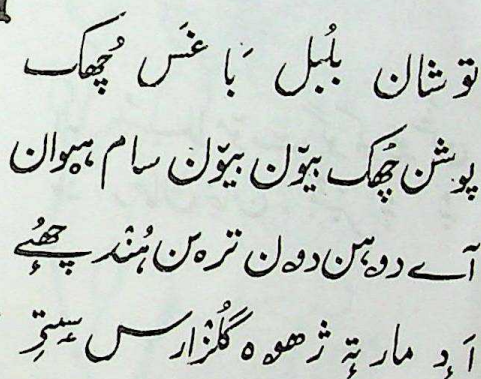 توشان بلُبل بَا غَس چُھک
پوشن چُھک بیوٚن بیوٚن سام ہیوان
آے دوہن دون ترہن ہُنٛد چھُے
اَدٕ مارتہٕ ژھوہ گُلزارس سٟتۍ